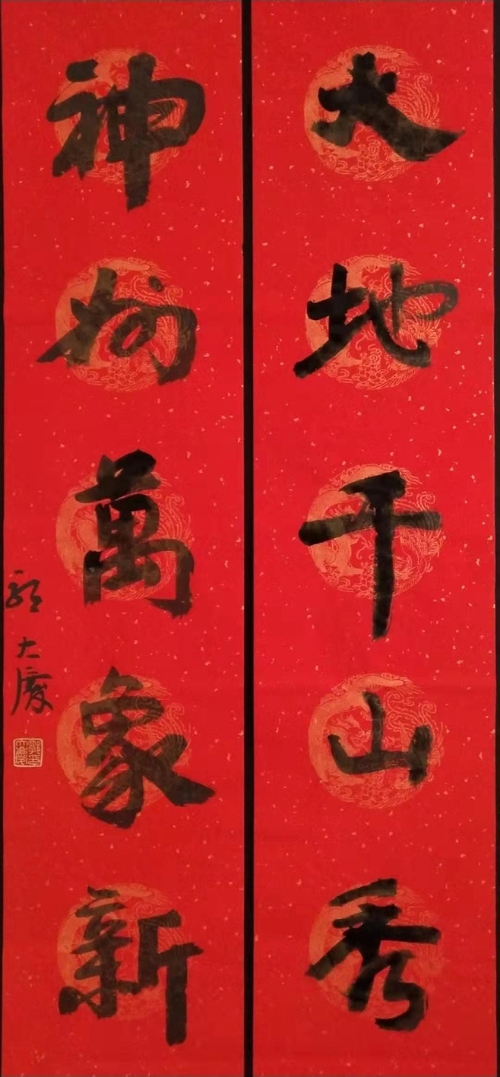 大地千山秀
神州萬象新
大慶